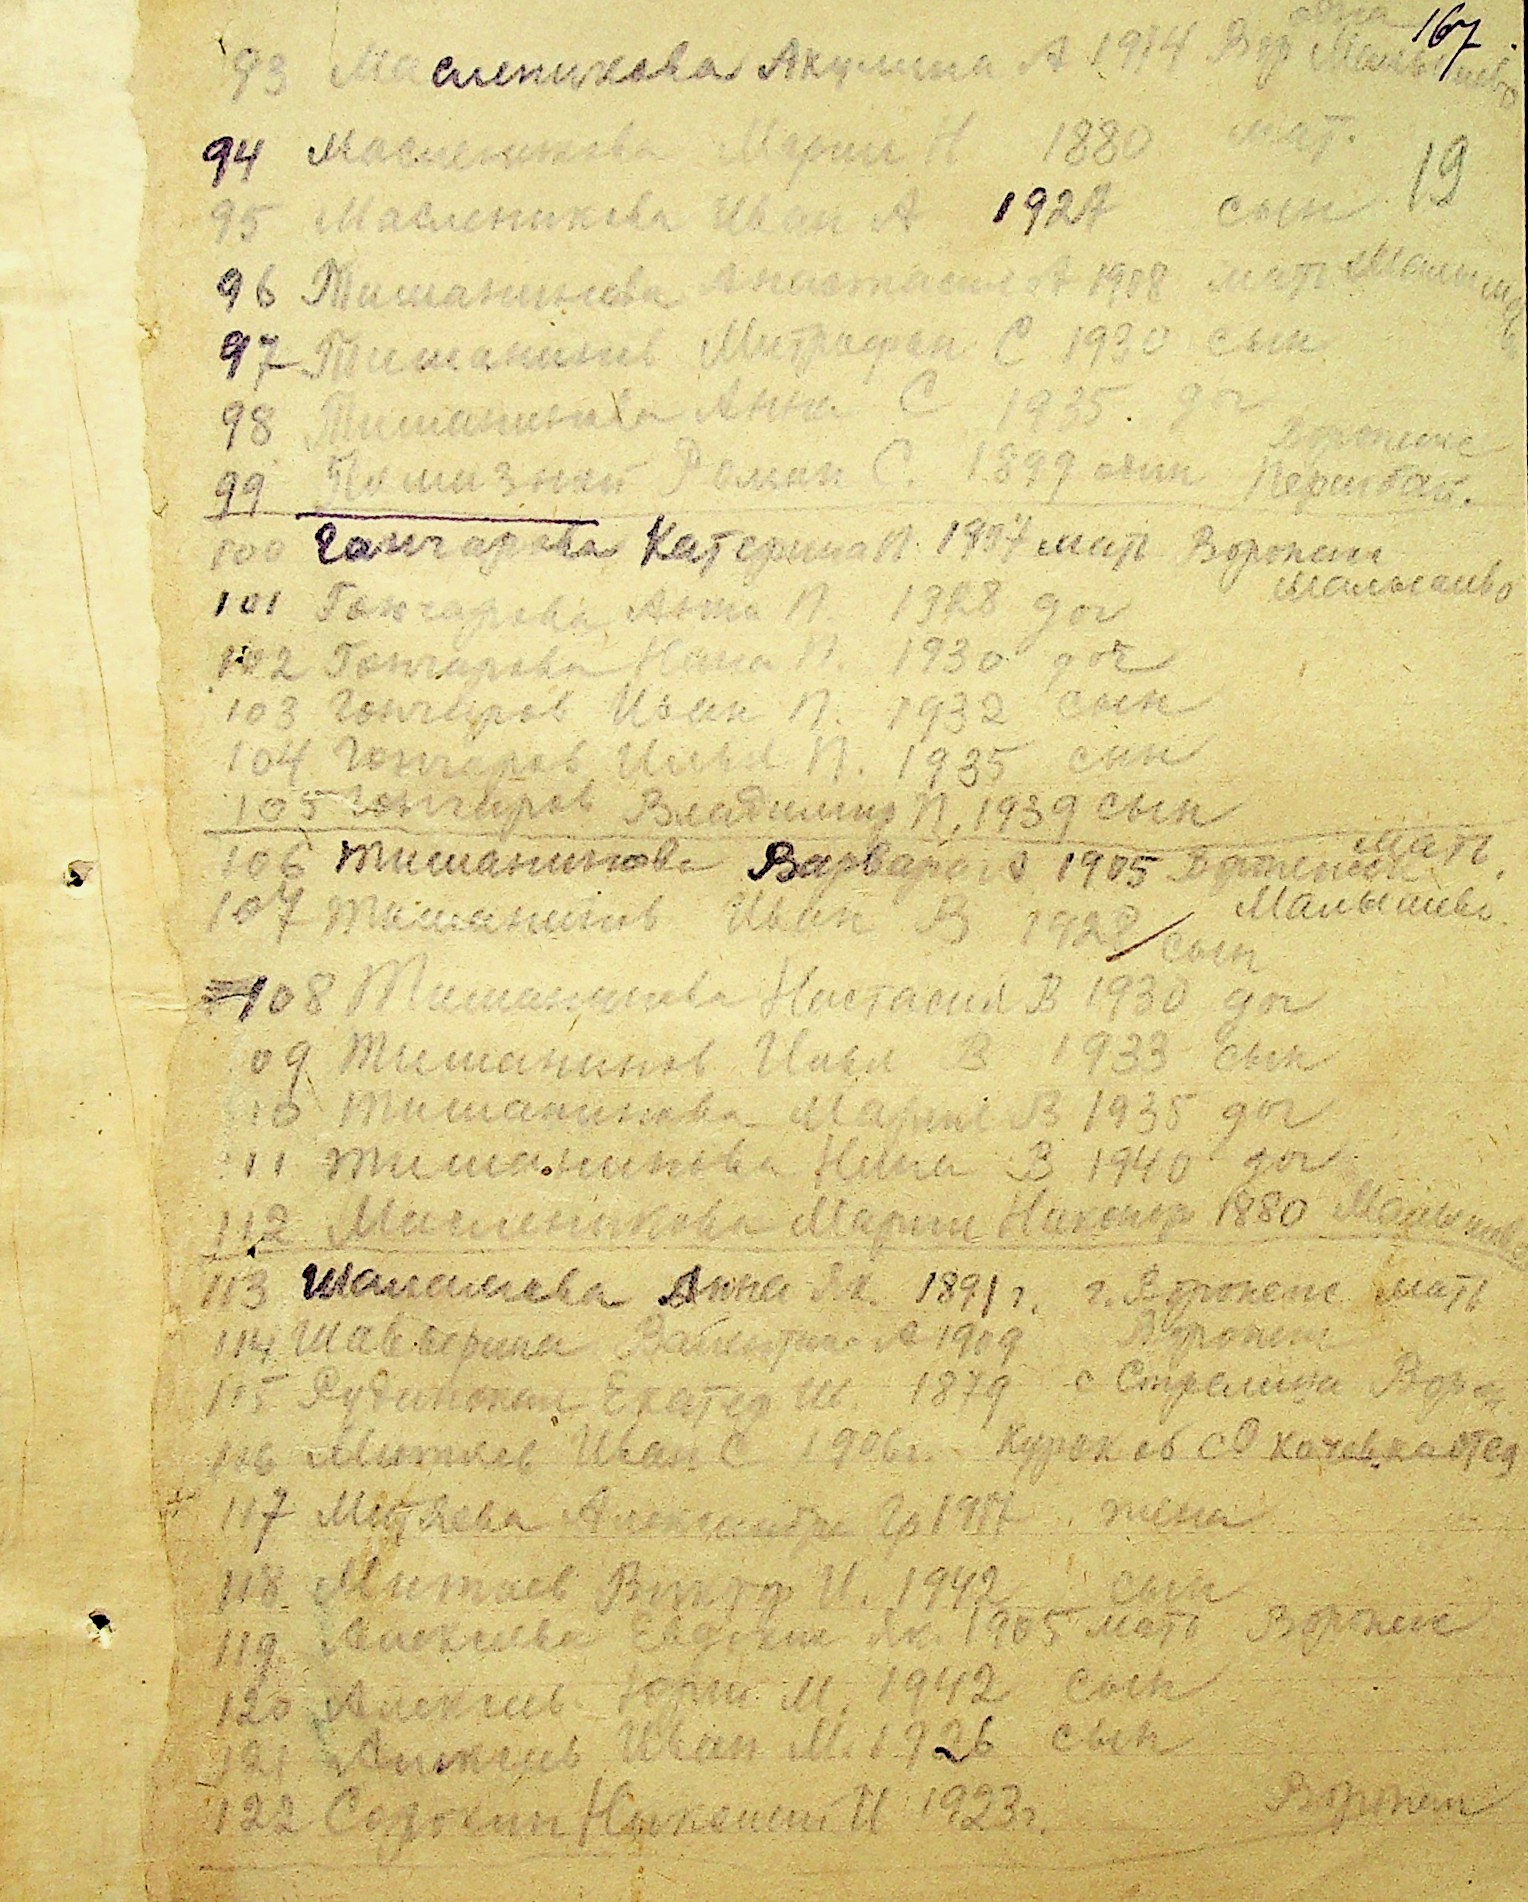 167.
93 Масленикова Акулина А 1914 Вор Малышево
94 Масленикова Мария 1880 мат.
19
95 Масленикова Иван А 1927 сын
96 Тишанинова Анастасия А 1908 мат
97 Тишанинов Митрофан С 1930 сын
98 Тишанинова Анна С 1935 доч
Воронеж
99 Роман С. 1899 один
100 Гончарова Катерина П. 1907 мат Воронеж
Малышево
101 Гончарова Анна П. 1928 доч
102 Гончарова Нина П. 1930 доч
103 Гончаров Иван П. 1932 сын
104 Гончаров Илья П. 1935 сын
105 Гончаров Владимир П. 1939 сын
мать
106 Тишанинова Варвара А 1905 Воронеж
Малышево
107 Тишанинов Иван В 1928 сын
108 Тишанинова Настасия В 1930 доч
09 Тишанинов Илья В 1933 сын
10 Тишанинова Мария В 1935 доч
11 Тишанинова Нина В 1940 доч
112 Масленикова Мария Никонор 1880 Малышево
113 Шаламова Анна Як. 1891 г. г. Воронеж мать
114 Валентина А 1909 Воронеж
115 Екатер 1879 с Стрелица Ворон
116 Митяев Иван С 1906 г. Курск об
117 Митяева Александра Гр 1917 жена
118 Митяев Виктор И. 1942 сын
119 Алексеева Евдокия Як. 1905 мать Воронеж
120 Алексеев Юрий М. 1942 сын
121 Алексеев Иван М. 1926 сын
122 Сорокин И 1923 г. Воронеж